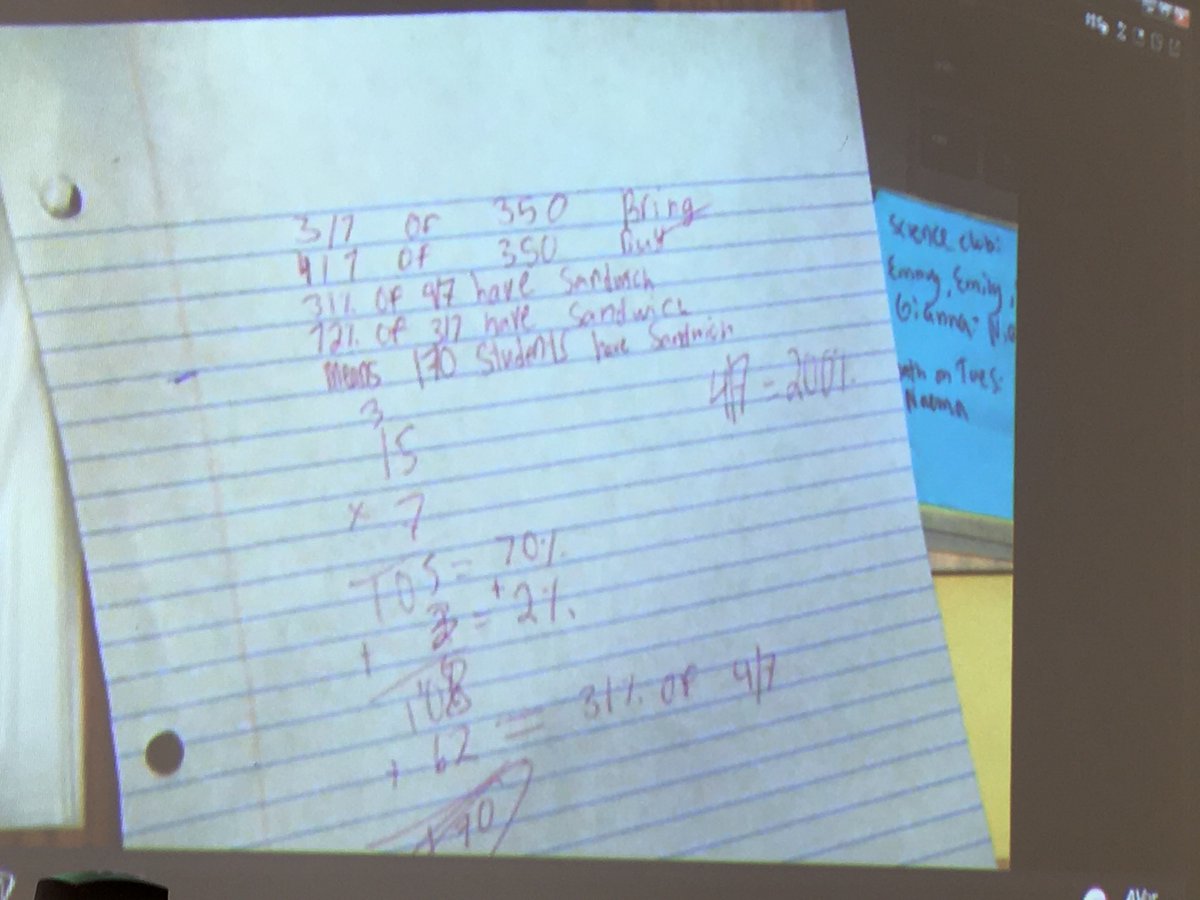 3/7 of 350 Bring
4/7 of 350 Buy
31% of 4/7 have Sandwich
72% of 3/7 have Sandwich
Means 170 Students have Sandwich
4/7 = 200%
3
15
x 7
105 = 70%
+ 3 = + 2%
108
+ 62 = 31% of 4/7
170
Science club:
Emmy, Emily,
Gianna
on Tues:
Naema